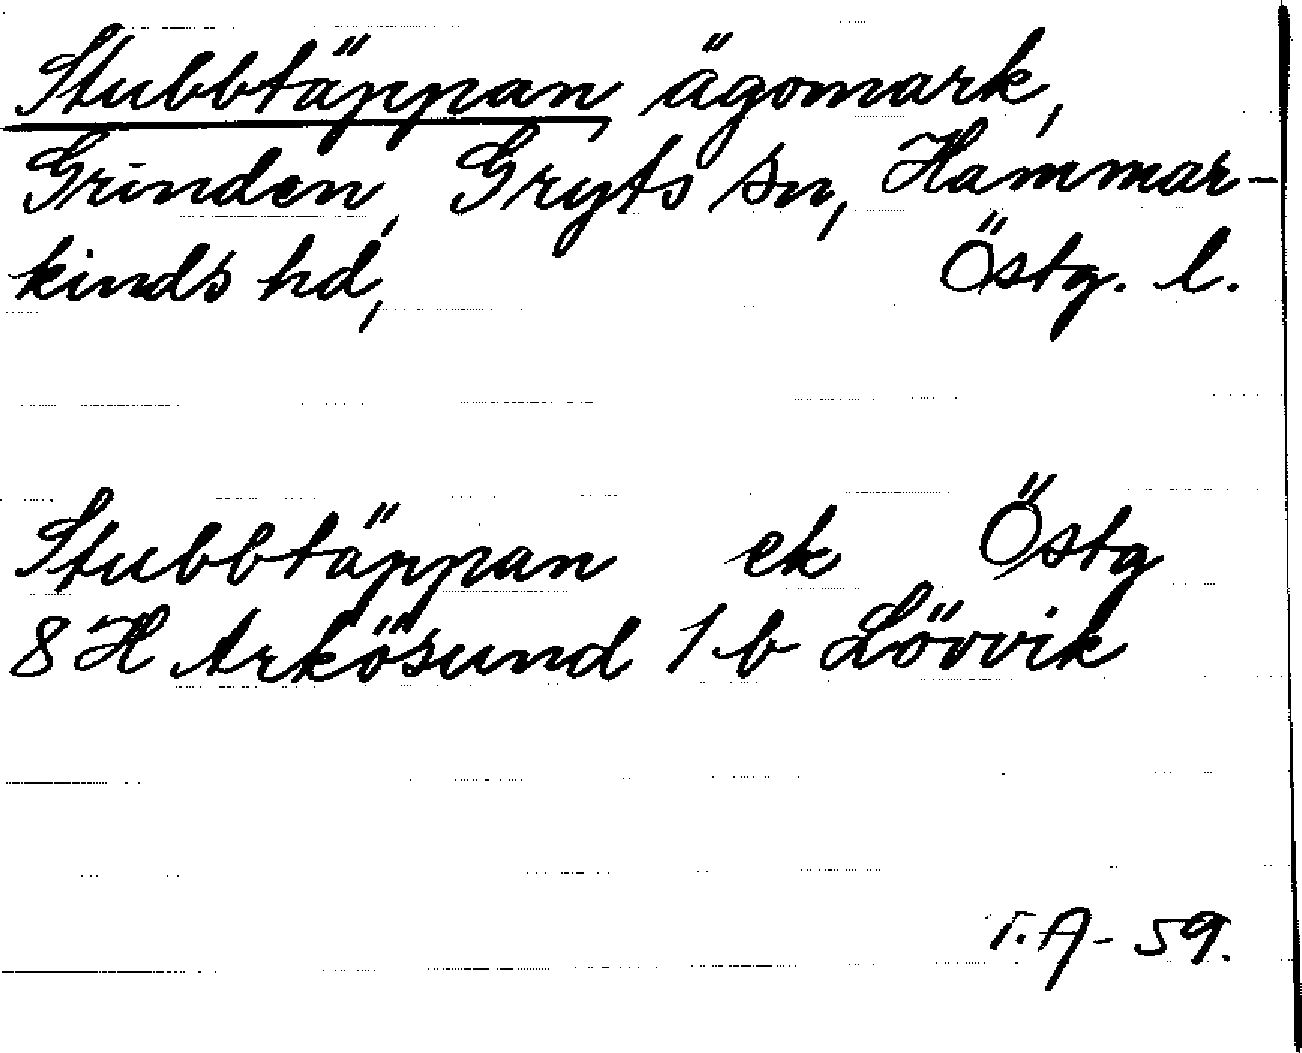 Stubbtäppan, ägomark,
Grinden, Gryts sn, Hammar-
kinds hd, Östg. l.
Stubbtäppan ek Östg
8 H Arkösund 1 b Lövvik
T.A - 59.